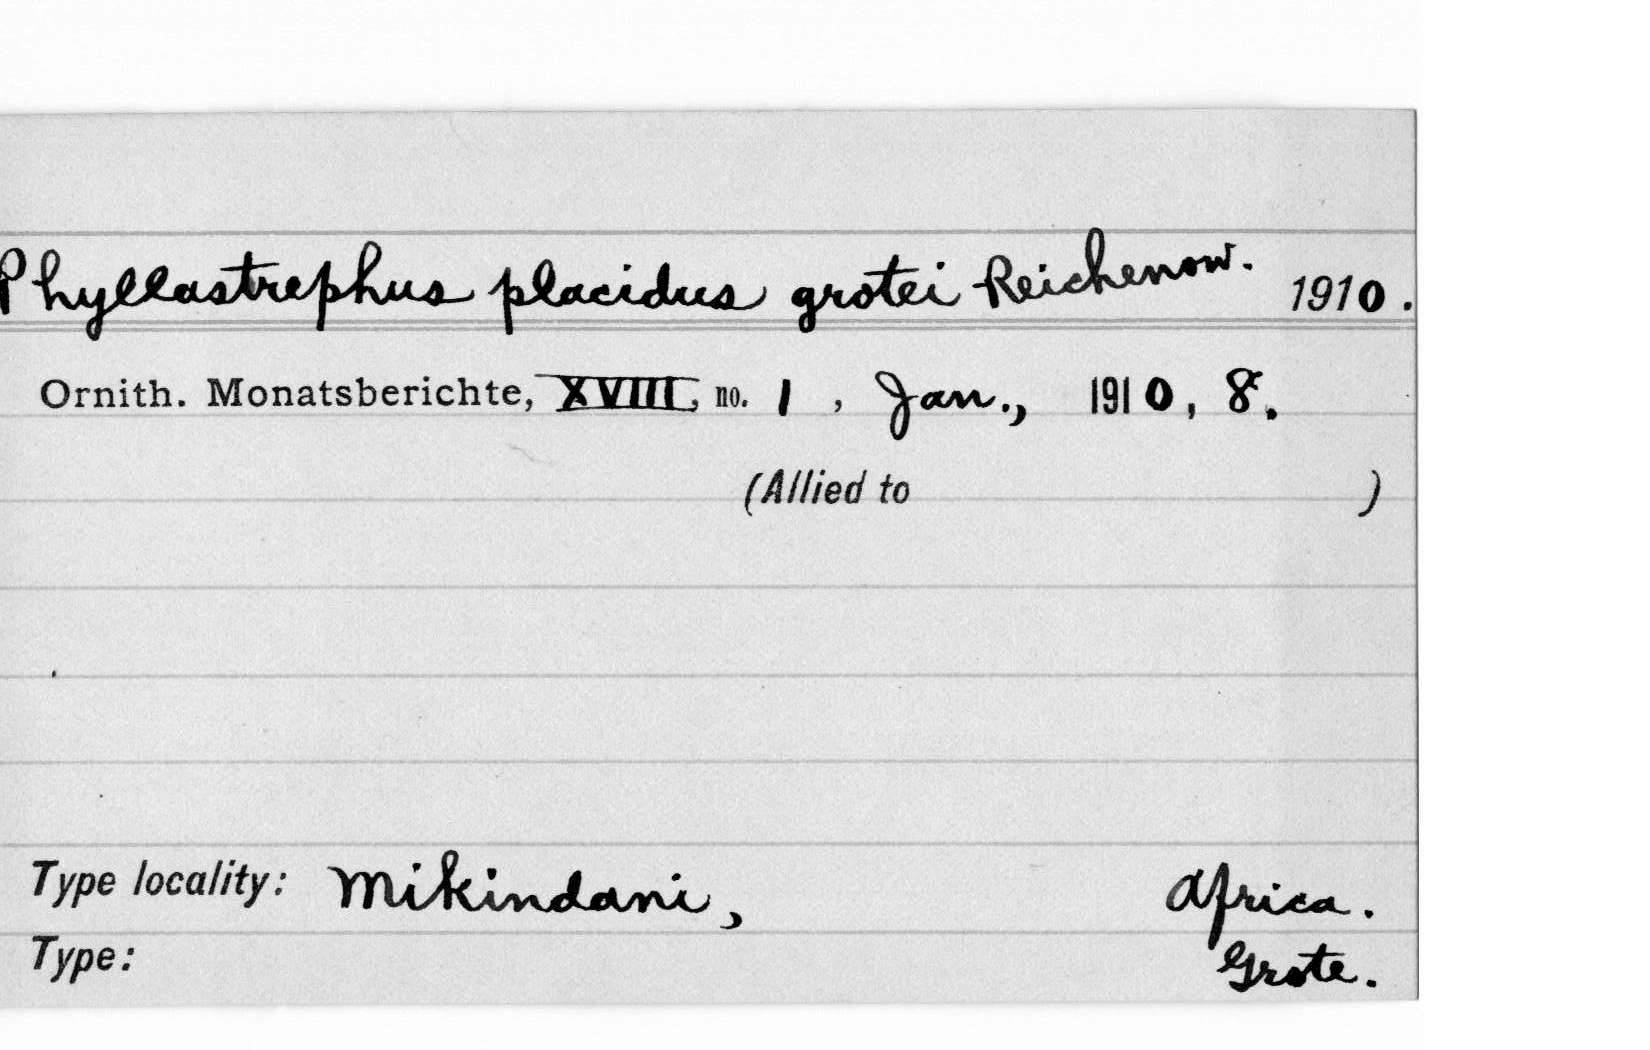 Phyllastrephus placidus grotei Reichenow. 1910.
Ornith. Monatsberichte, XVIII, no. 1, Jan., 1910, 8.
(Allied to )
Type locality: Mikindani, Africa.
Type: Grote.